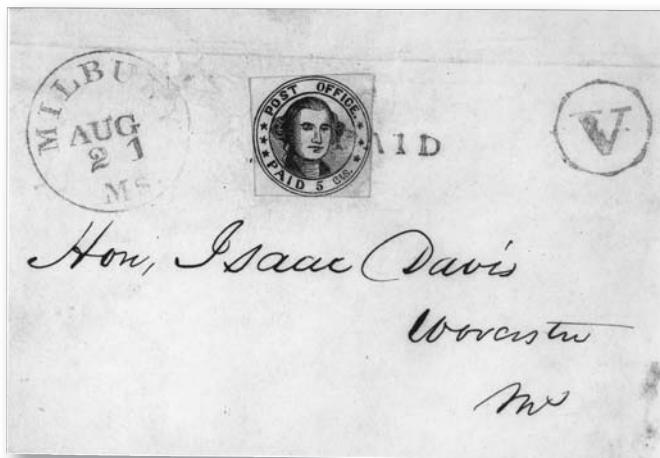 MILBU
AUG
21
Ms
POST OFFICE.
PAID 5 cts.
AID
V
Hon, Isaac Davis
Worcester
Ms